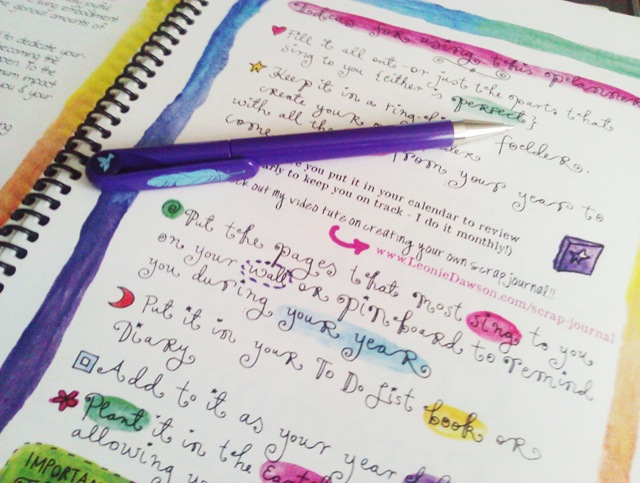 joyful
to dedicate your
becoming the
Ideas for using this planner
Fill it all out - or just the parts that
sing to you {either is perfect}
Keep it in a ring-
create your folder.
with all the from your year to
come
you put it in your calendar to review
to keep you on track - I do it monthly!)
out my video tute on creating your own scrap journal!!
www.LeonieDawson.com/scrap-journal
Put the pages that most sing to you
on your wall or pin board to remind
you during your year
Put it in your To Do List book or
Diary
Add to it as your year
Plant it in the
allowing
IMPORTAN